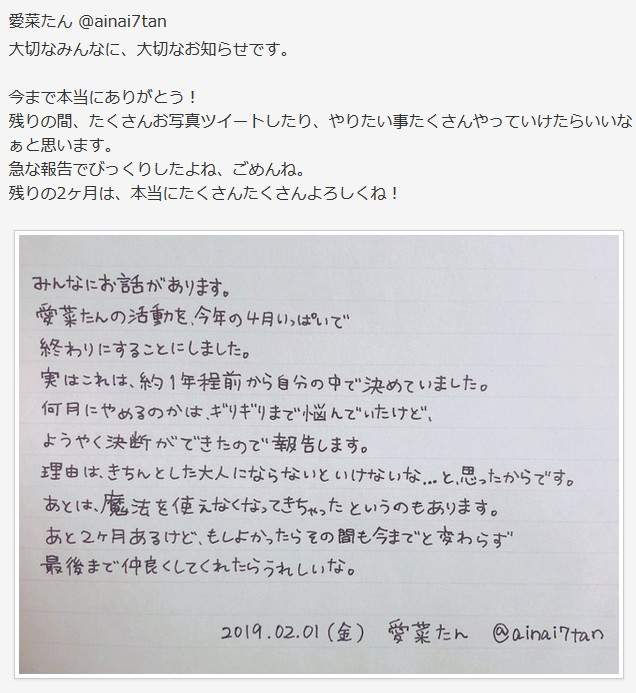 愛菜たん @ainai7tan
大切なみんなに、大切なお知らせです。
今まで本当にありがとう！
残りの間、たくさんお写真ツイートしたり、やりたい事たくさんやっていけたらいいな
ぁと思います。
急な報告でびっくりしたよね、ごめんね。
残りの2ヶ月は、本当にたくさんたくさんよろしくね！
みんなにお話があります。
愛菜たんの活動を、今年の4月いっぱいで
終わりにすることにしました。
実はこれは、約1年程前から自分の中で決めていました。
何月にやめるのかは、ギリギリまで悩んでいたけど、
ようやく決断ができたので報告します。
理由は、きちんとした大人にならないといけないな…と、思ったからです。
あとは、魔法を使えなくなってきちゃったというのもあります。
あと2ヶ月あるけど、もしよかったらその間も今までと変わらず
最後まで仲良くしてくれたらうれしいな。
2019.02.01(金) 愛菜たん @ainai7tan